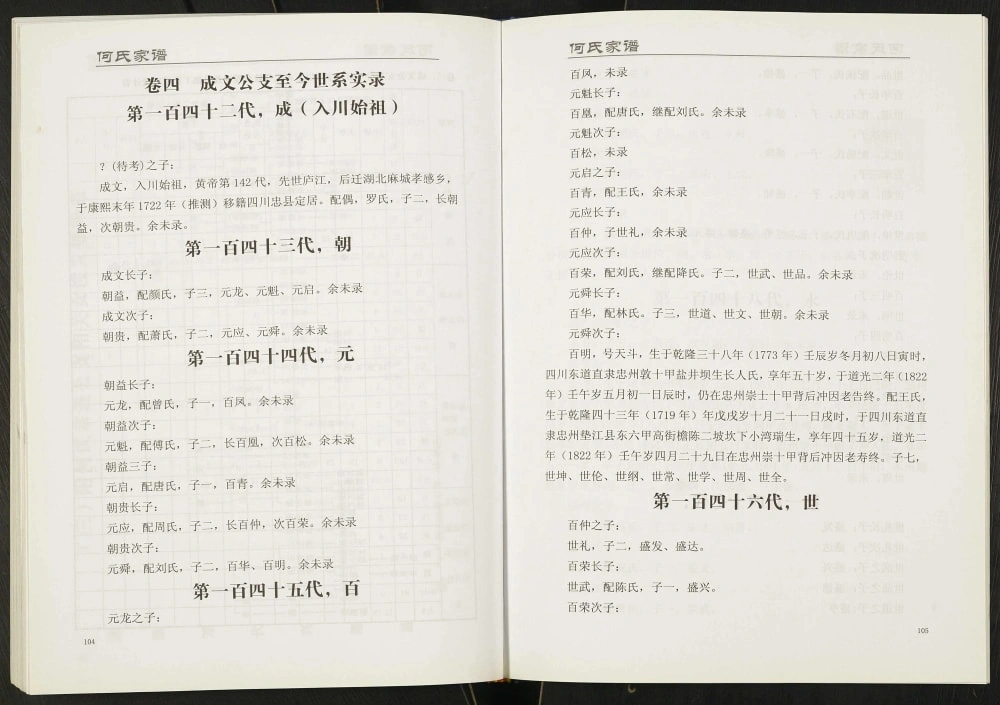 何氏家谱
卷四　成文公支至今世系实录
第一百四十二代，成（入川始祖）
？(待考)之子：
成文，入川始祖，黄帝第 142 代，先世庐江，后迁湖北麻城孝感乡，
于康熙末年 1722 年（推测）移籍四川忠县定居。配偶，罗氏，子二，长朝
益，次朝贵。余未录。
第一百四十三代，朝
成文长子：
朝益，配颜氏，子三，元龙、元魁、元启。余未录
成文次子：
朝贵，配萧氏，子二，元应、元舜。余未录
第一百四十四代，元
朝益长子：
元龙，配曾氏，子一，百凤。余未录
朝益次子：
元魁，配傅氏，子二，长百凰，次百松。余未录
朝益三子：
元启，配唐氏，子一，百青。余未录
朝贵长子：
元应，配周氏，子二，长百仲，次百荣。余未录
朝贵次子：
元舜，配刘氏，子二，百华、百明。余未录
第一百四十五代，百
元龙之子：
104
何氏家谱
百凤，未录
元魁长子：
百凰，配唐氏，继配刘氏。余未录
元魁次子：
百松，未录
元启之子：
百青，配王氏，余未录
元应长子：
百仲，子世礼，余未录
元应次子：
百荣，配刘氏，继配降氏。子二，世武、世品。余未录
元舜长子：
百华，配林氏。子三，世道、世文、世朝。余未录
元舜次子：
百明，号天斗，生于乾隆三十八年（1773 年）壬辰岁冬月初八日寅时，
四川东道直隶忠州敦十甲盐井坝生长人氏，享年五十岁，于道光二年（1822
年）壬午岁五月初一日辰时，仍在忠州崇士十甲背后冲因老告终。配王氏，
生于乾隆四十三年（1719 年）年戊戌岁十月二十一日戌时，于四川东道直
隶忠州垫江县东六甲高街檐陈二坡坎下小湾瑞生，享年四十五岁，道光二
年（1822 年）壬午岁四月二十九日在忠州崇十甲背后冲因老寿终。子七，
世坤、世伦、世纲、世常、世学、世周、世全。
第一百四十六代，世
百仲之子：
世礼，子二，盛发、盛达。
百荣长子：
世武，配陈氏，子一，盛兴。
百荣次子：
105